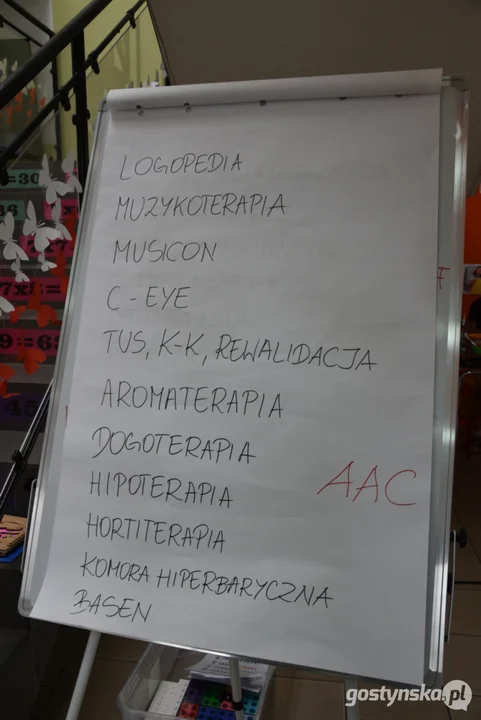 LOGOPEDIA
MUZYKOTERAPIA
MUSICON
C-EYE
TUS, K-K, REWALIDACJA
AROMATERAPIA
DOGOTERAPIA
HIPOTERAPIA
AAC
HORTITERAPIA
KOMORA HIPERBARYCZNA
BASEN
gostynska.pl